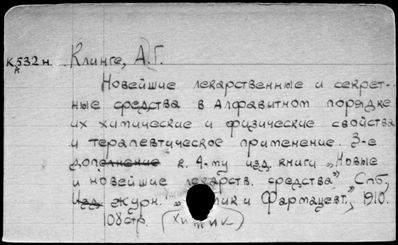 К 532 н. Клинге, А.Г.
Новейшие лекарственные и секрет-
ные средства в алфавитном порядке
их химические и физические свойства
и терапевтическое применение. 3-е
дополнение к 4-му изд. книги „Новые
и новейшие лекарств. средства" Спб,
Изд. журн. и Фармацевт.," 1910.
108 стр. (Химик)